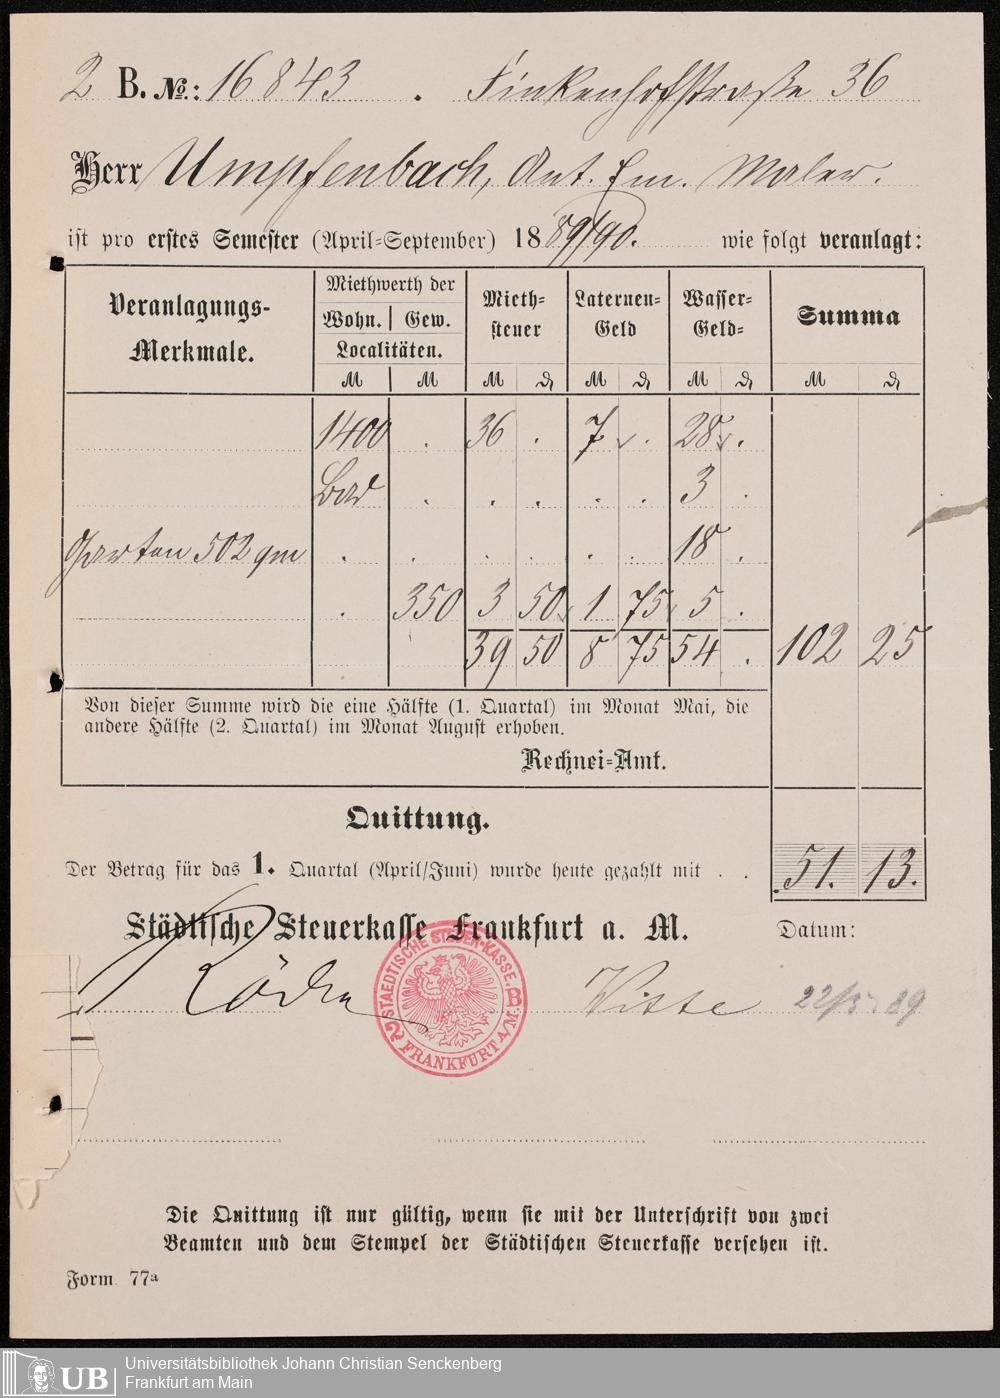 2 B. No.: 16843 . Finkenhofstraße 36
Herr Umpfenbach, Ant. Em. Maler.
ist pro erstes Semester (April-September) 1889/90. wie folgt veranlagt:
Veranlagungs-Merkmale. Miethwerth der Wohn. Gew. Localitäten. Mieth-steuer Laternen-Geld Wasser-Geld- Summa
M M M ₰ M ₰ M ₰ M ₰
1400 . 36 . 7 . 28 .
Bad . . . . . 3 .
Garten 502 qm . . . . . 18 .
. 350 3 50 1 75 5 .
39 50 8 75 54 . 102 25
Von dieser Summe wird die eine Hälfte (1. Quartal) im Monat Mai, die
andere Hälfte (2. Quartal) im Monat August erhoben.
Rechnei-Amt.
Quittung.
Der Betrag für das 1. Quartal (April/Juni) wurde heute gezahlt mit . . 51. 13.
Städtische Steuerkasse Frankfurt a. M. Datum:
Witte 22/5 89
STAEDTISCHE STEUER-KASSE. B
2 FRANKFURT A/M.
Die Quittung ist nur gültig, wenn sie mit der Unterschrift von zwei
Beamten und dem Stempel der Städtischen Steuerkasse versehen ist.
Form. 77a
UB Universitätsbibliothek Johann Christian Senckenberg
Frankfurt am Main